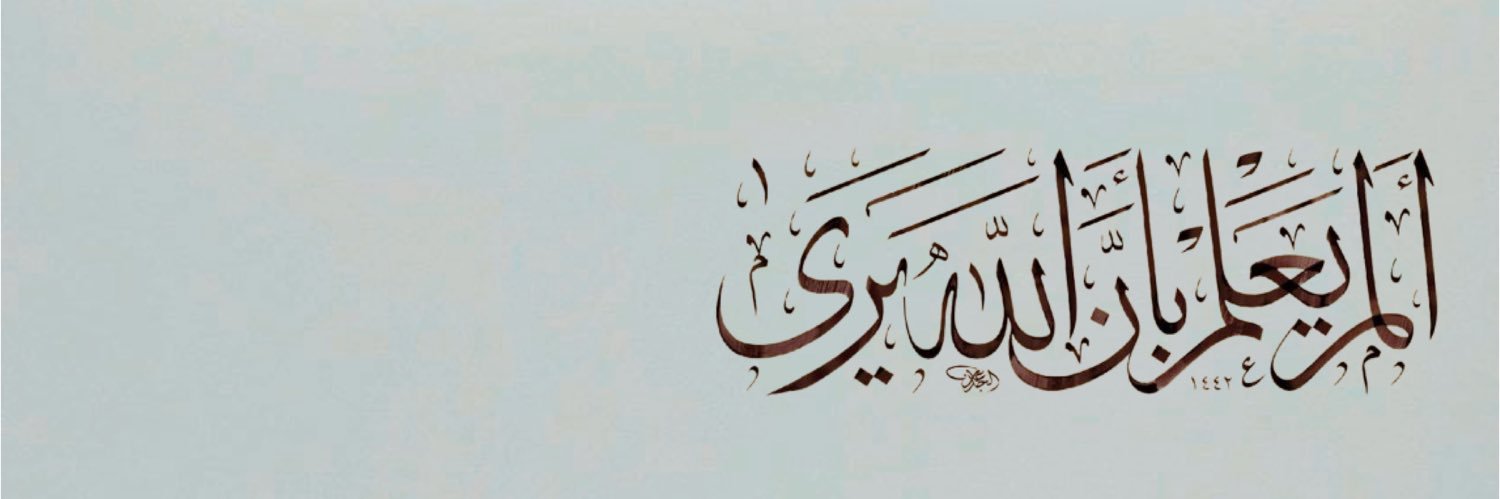 ألم يعلم بأنَّ اللّٰه يرى
١٤٤٢